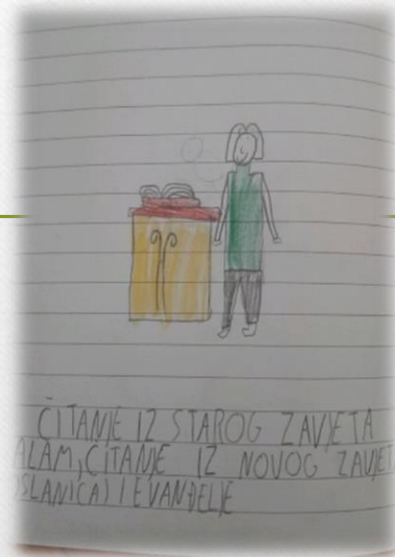 ČITANJE IZ STAROG ZAVJETA
ALAM, ČITANJE IZ NOVOG ZAVJET
OSLANICA) I EVANĐELJE